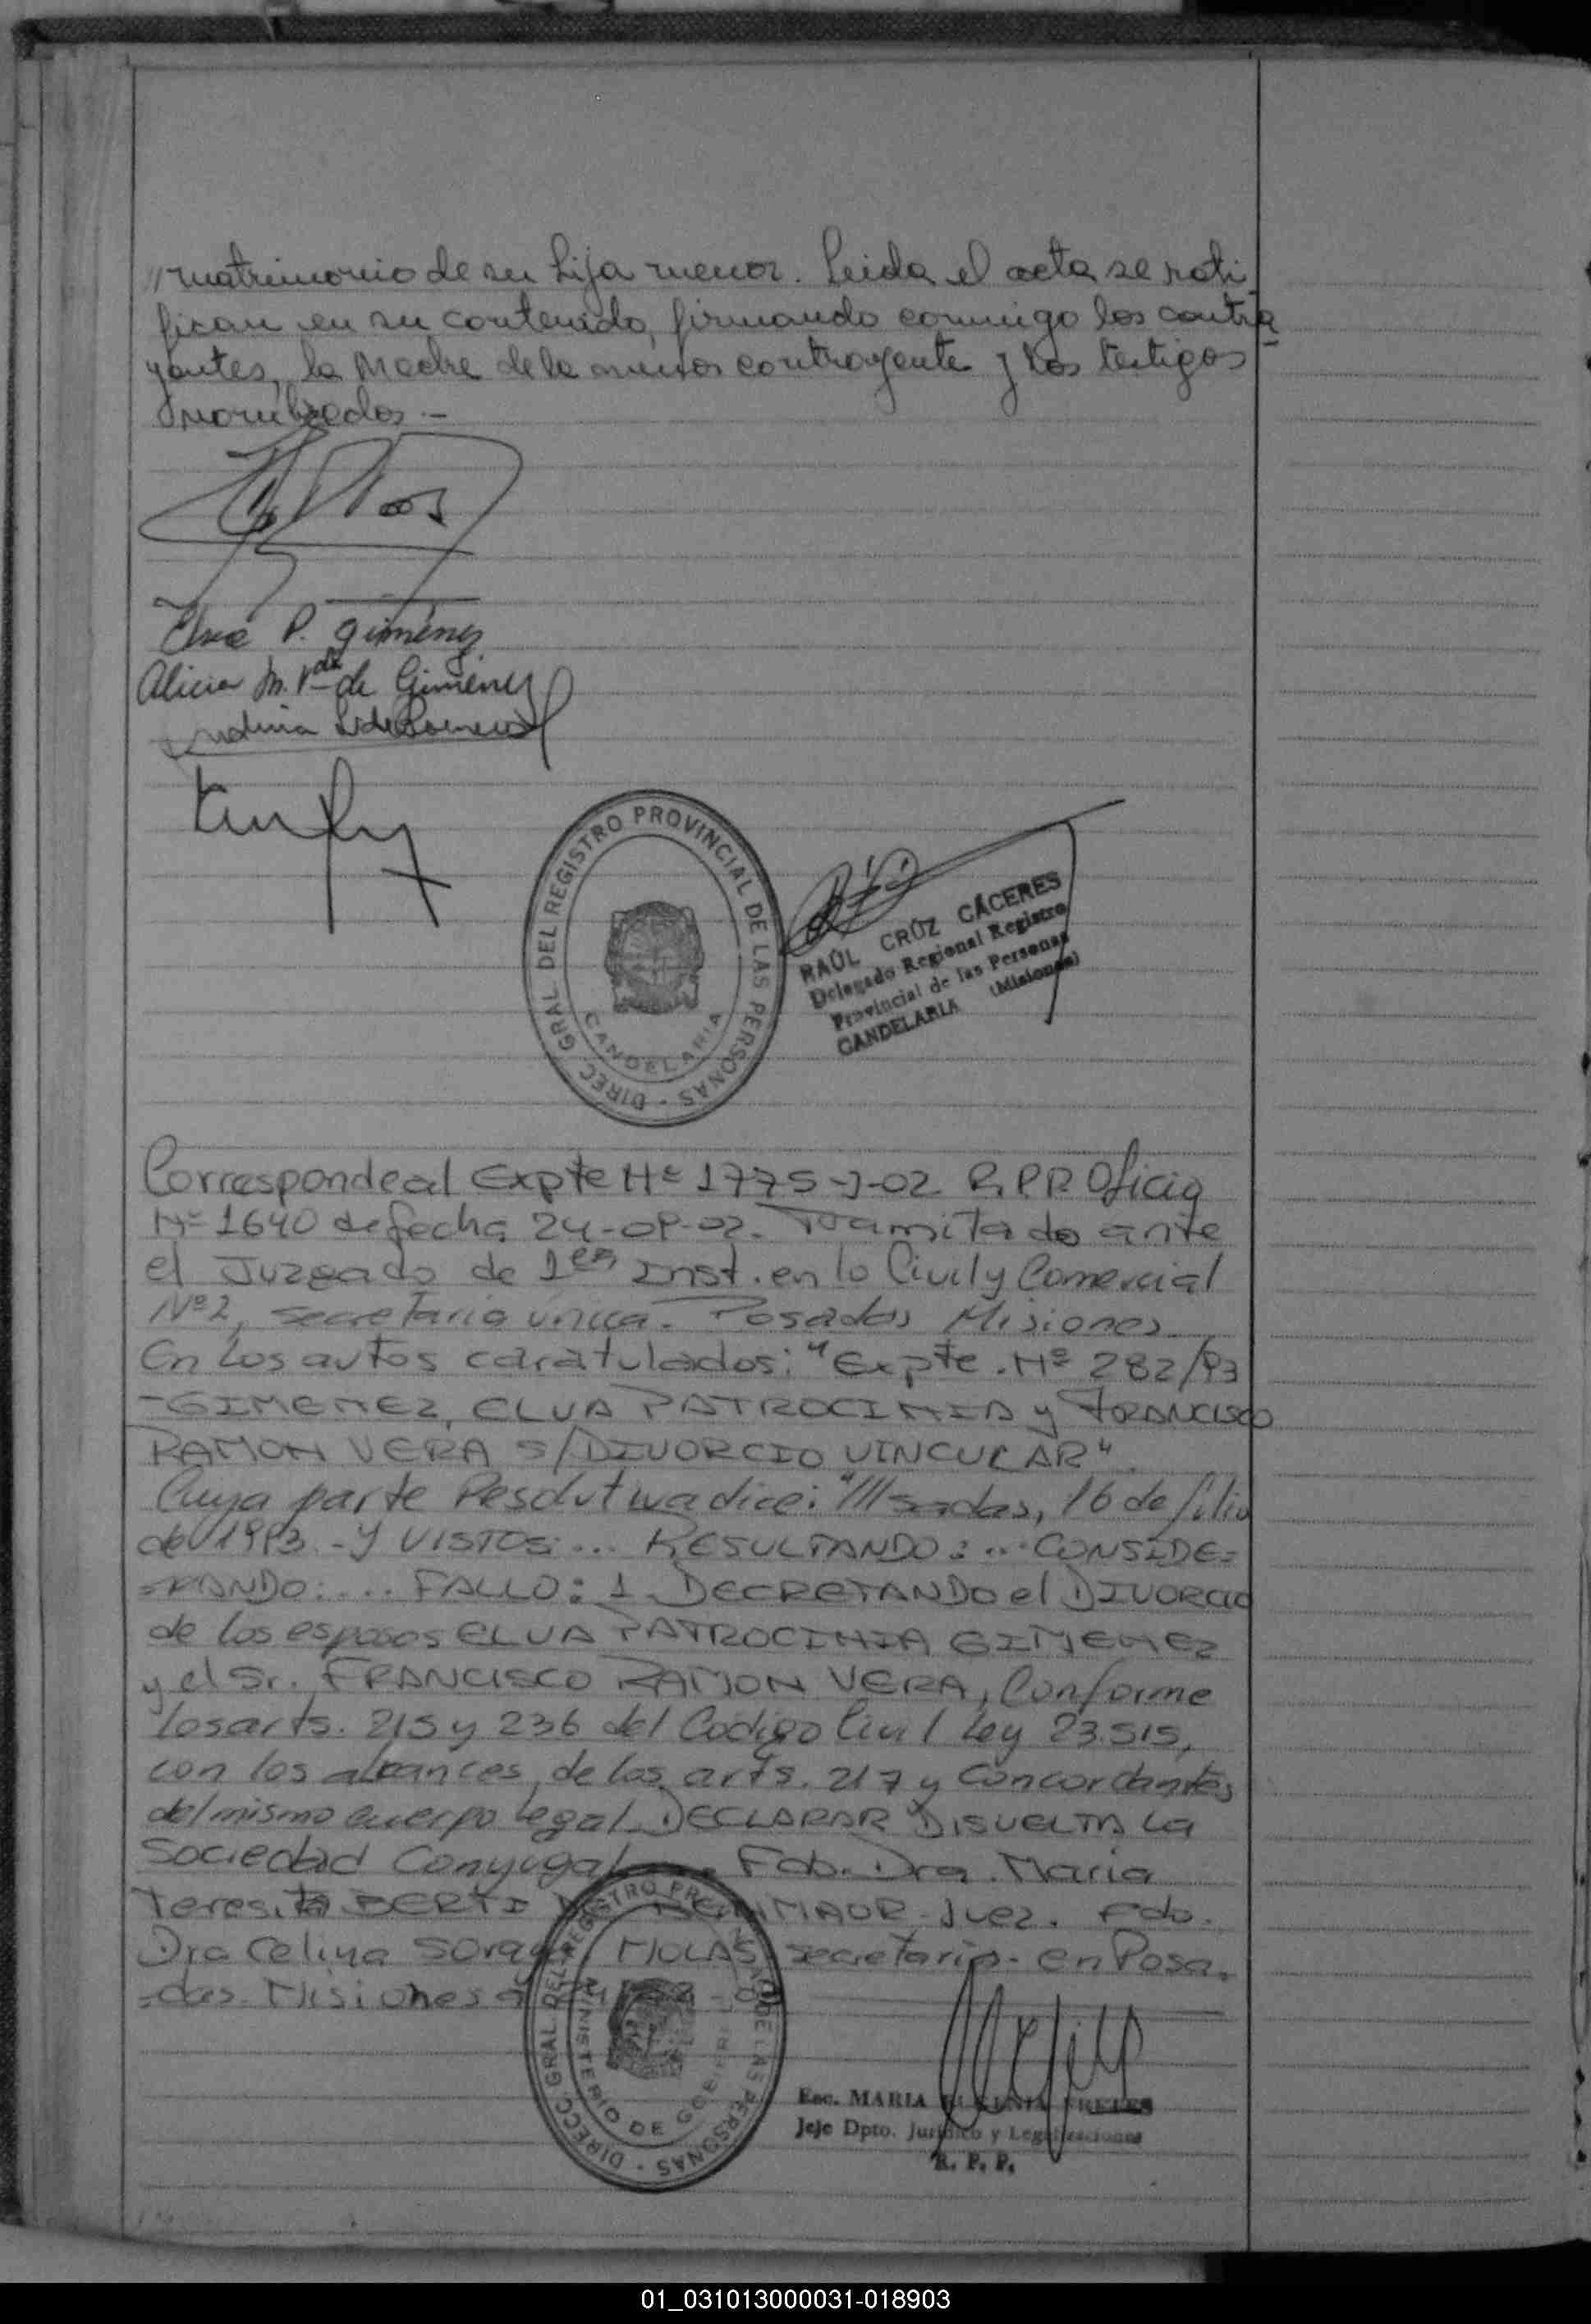 //matrimonio de su hija menor. Leida el acta se rati-
fican en su contenido, firmando conmigo los contra-
yentes, la Madre de la menor contrayente y los testigos
nombrados.-
Elva P. Giménez
Alicia M. Vda de Gimenez
DIREC. GRAL. DEL REGISTRO PROVINCIAL DE LAS PERSONAS -
CANDELARIA
RAÚL CRUZ CÁCERES
Delegado Regional Registro
Provincial de las Personas
CANDELARIA (Misiones)
Corresponde al Expte Nº 1775-J-02 R.P.P. Oficio
Nº 1640 de fecha 24-09-02. Tramitado ante
el Juzgado de 1era Inst. en lo Civil y Comercial
Nº 2, secretaria única. Posadas Misiones.
En los autos caratulados: "Expte. Nº 282/93
-GIMENEZ, ELVA PATROCINIA y FRANCISCO
RAMON VERA S/DIVORCIO VINCULAR".
Cuya parte Resolutiva dice: "///sadas, 16 de Julio
de 1993.- Y VISTOS:... RESULTANDO:... CONSIDE=
=RANDO:... FALLO: 1- DECRETANDO el DIVORCIO
de los esposos ELVA PATROCINIA GIMENEZ
y el Sr. FRANCISCO RAMON VERA, Conforme
los arts. 215 y 236 del Código Civil Ley 23.515,
con los alcances de los arts. 217 y concordantes
del mismo cuerpo legal DECLARAR DISUELTA La
Sociedad Conyugal Fdo. Dra. Maria
Teresita BERTI Juez. Fdo.
Dra Celina MOLAS secretaria- en Posa-
-das Misiones
DIRECC. GRAL. DEL REGISTRO DE LAS PERSONAS -
MINISTERIO DE GOBIERNO
Esc. MARIA EUGENIA FRETES
Jefe Dpto. Jurídico y Legalizaciones
R. P. P.
01_031013000031-018903